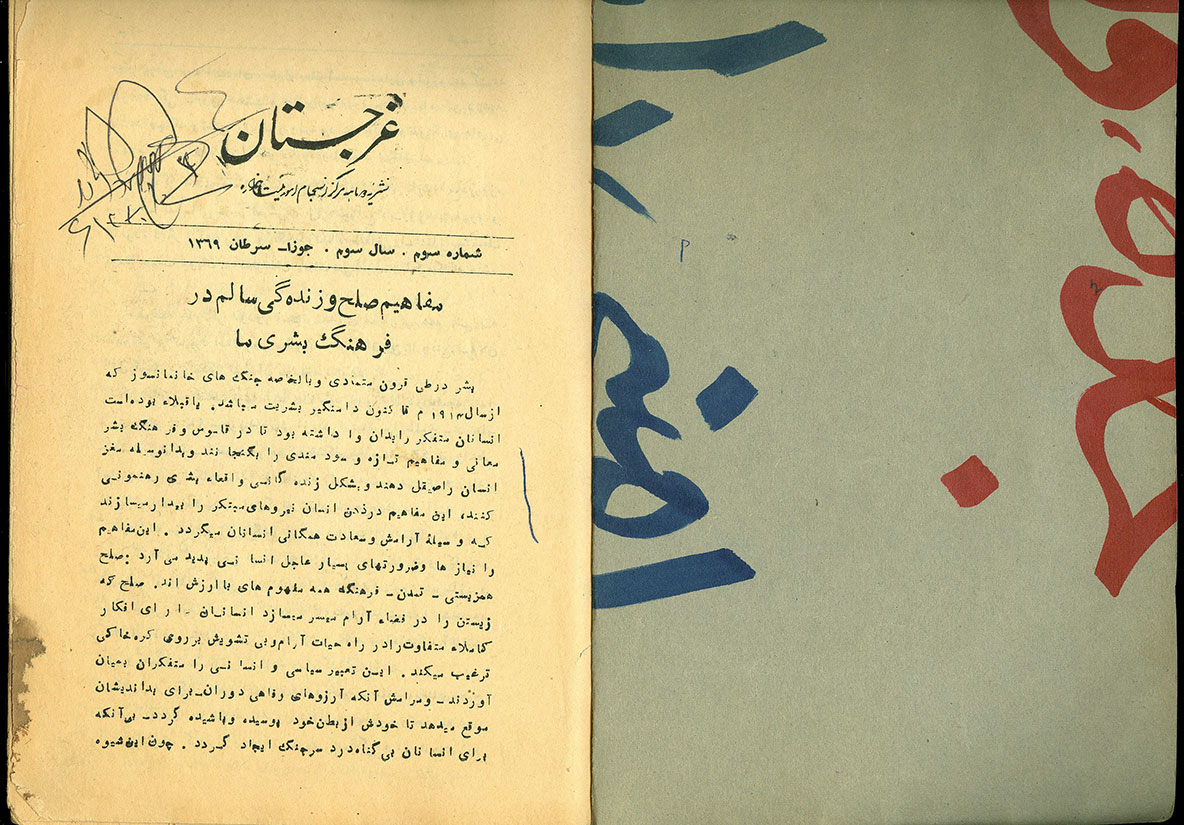 غرجستان
نشریه دو ماهه مرکز انسجام امور ملیت هزاره
شماره سوم . سال سوم . جوزا ـ سرطان ۱۳۶۹
مفاهیم صلح و زنده گی سالم در
فرهنگ بشری ما
بشر درطی قرون متمادی وبالخاصه جنگ های خانمانسوز که
ازسال ۱۹۱۴ م تا کنون دامنگیر بشریت میباشد. باقبلاء بوده است
انسانان متفکر رابدان وا داشته بود تا در قاموس وفرهنگ بشر
معانی و مفاهیم تازه و سود مندی را بگنجا نند وبدانوسیله مغز
انسان راصیقل دهند وبشکل زنده گانی واقعاء بشری رهنمونی
کنند، این مفاهیم درذهن انسان نیروهای مبتکر را بیدار میسازند
که و سیلهٔ آرامش وسعادت همگانی انسانان میگردد . این مفاهیم
را نیاز ها وضرورتهای بسیار عاجل انسا نی پدید می آرد :صلح
همزیستی ـ تمدن ـ فرهنگ همه مفهوم های باارزش اند. صلح که
زیستن را در فضاء آرام میسر میسازد انسانان دارای افکار
کاملاء متفاوت رادر راه حیات آرام وبی تشویش برروی کره خاکی
ترغیب میکند . این تعبیر سیاسی و انسا نی را متفکران بمیان
آوردند ـ ومرامش آنکه آرزوهای رفاهی دوران ـ برای بداندیشان
موقع میدهد تا خودش ازبطن خود پوسیده وپاشیده گردد ـ بی آنکه
برای انسا نان بی گناه درد سرجنگ ایجاد گردد . چون این شیوه